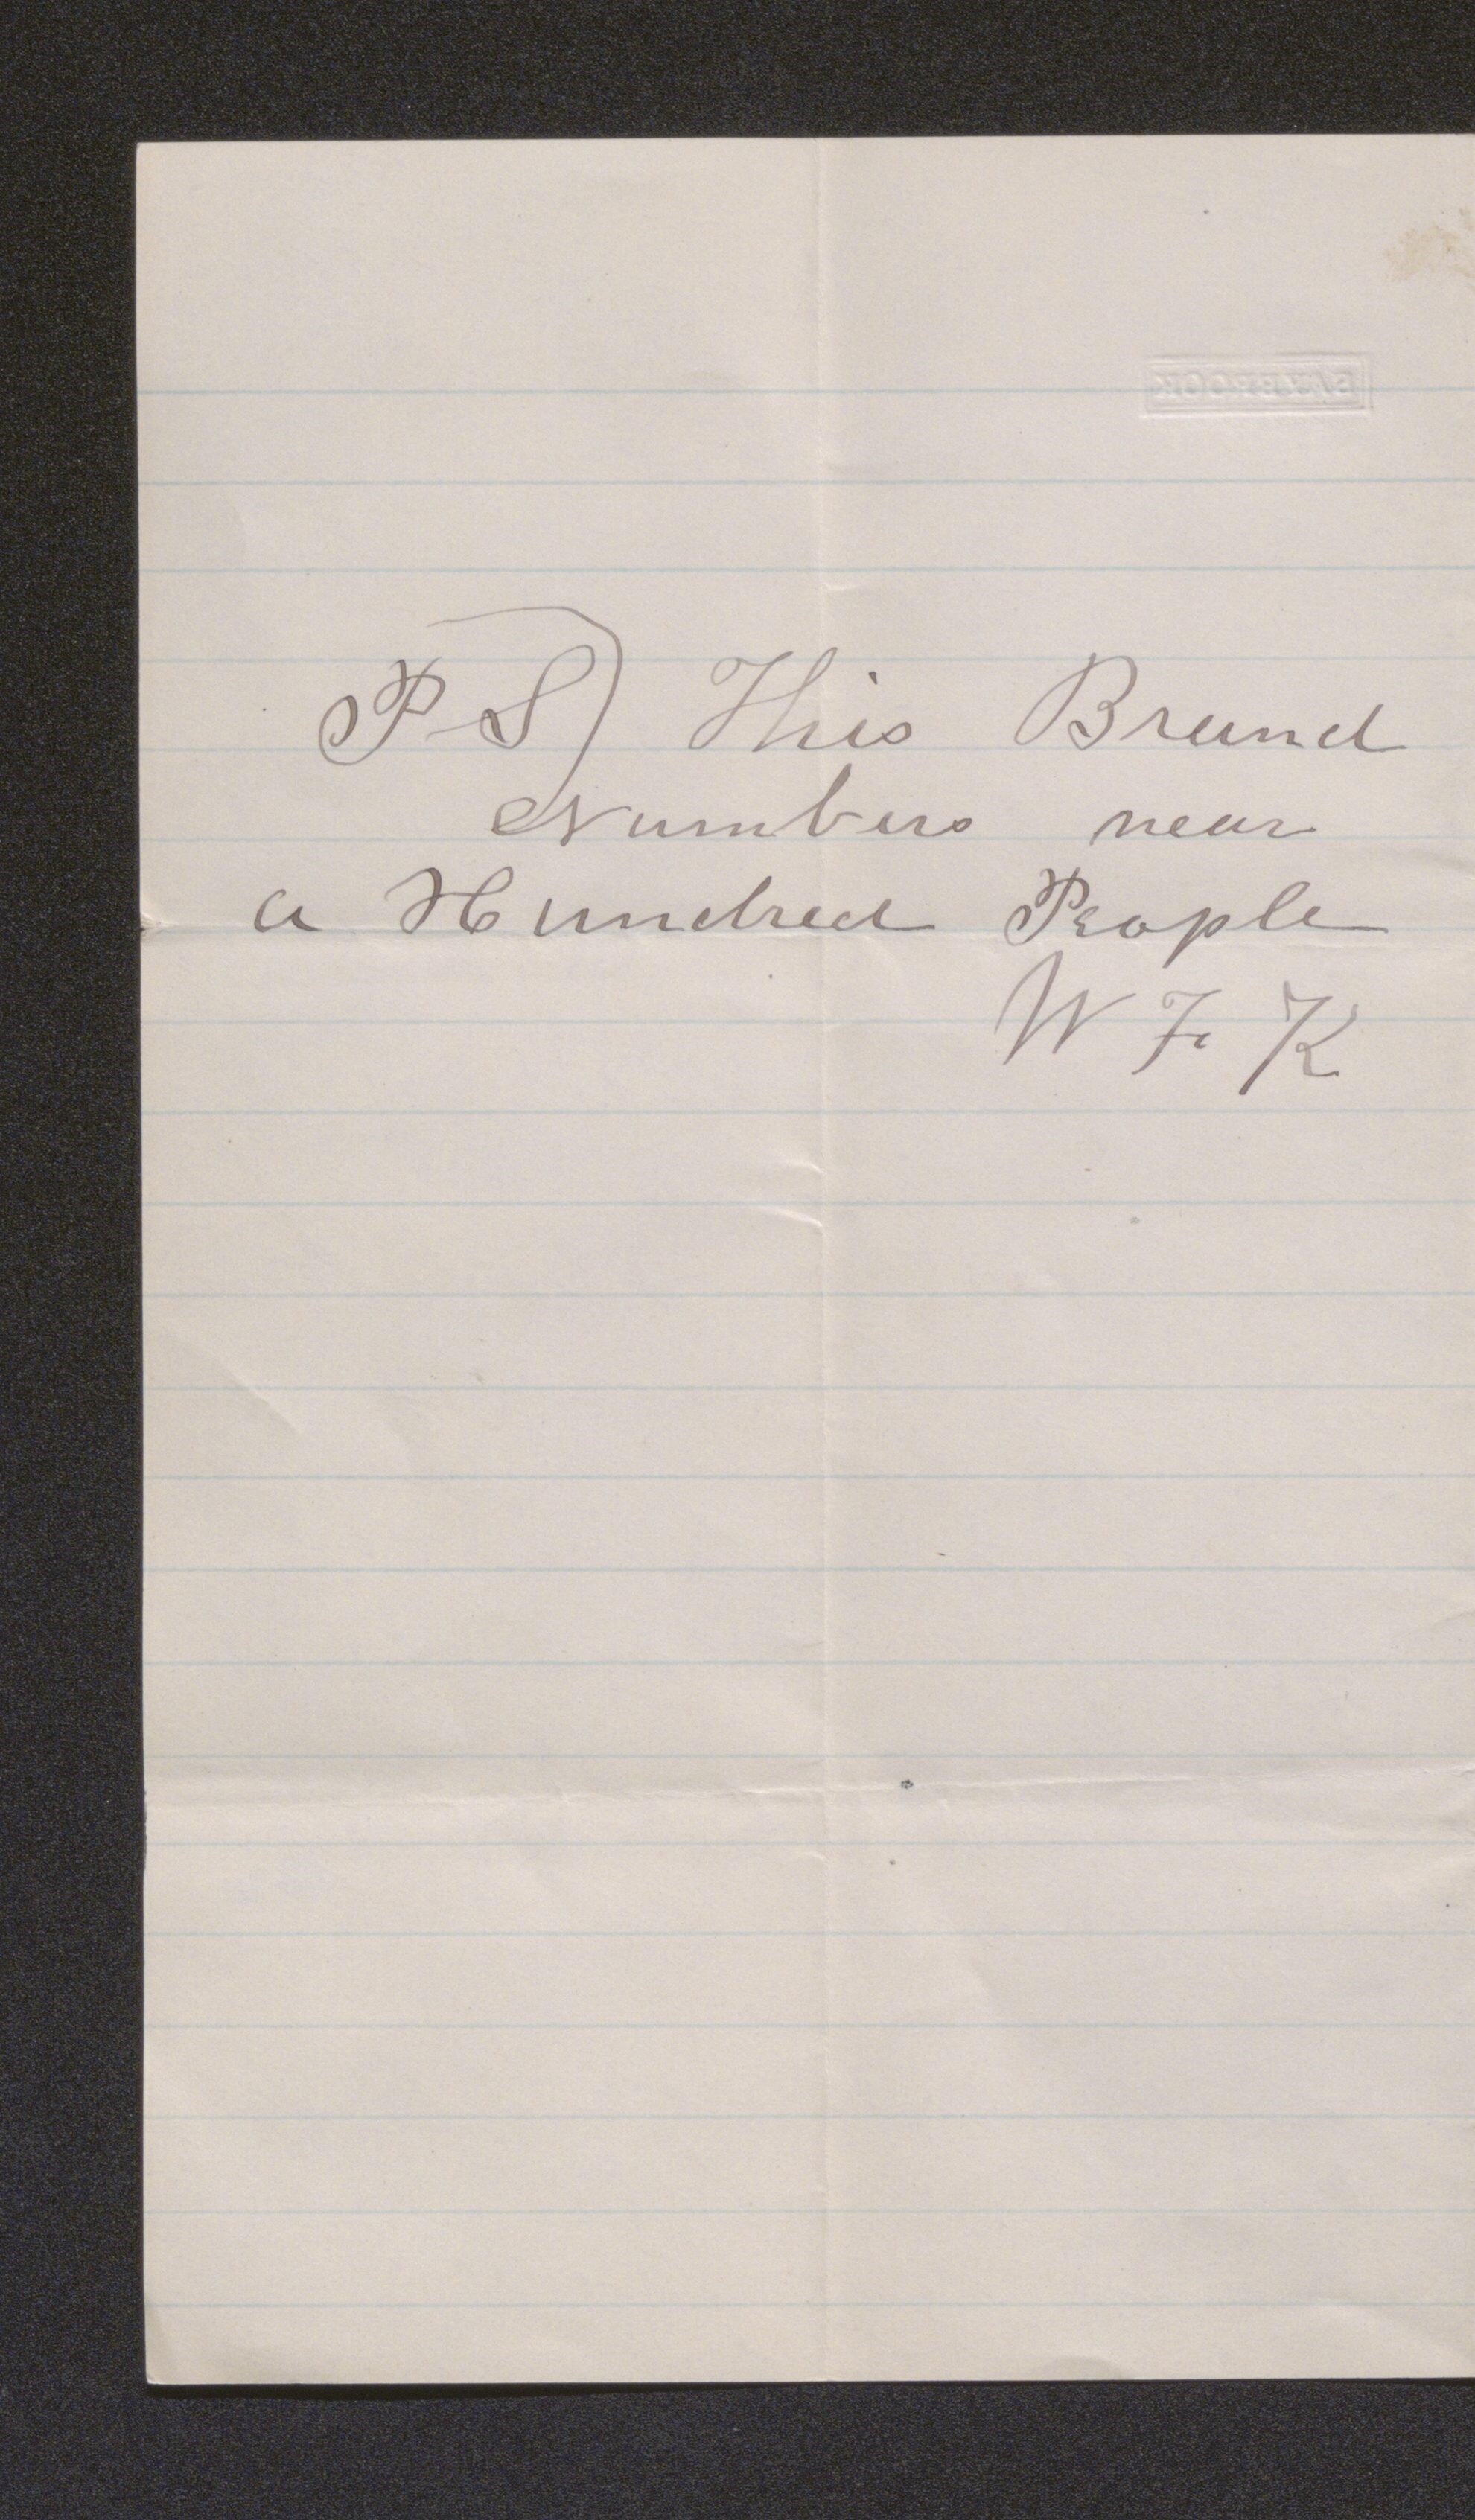 P S) This Brand
Numbers near
a Hundred People
W F K